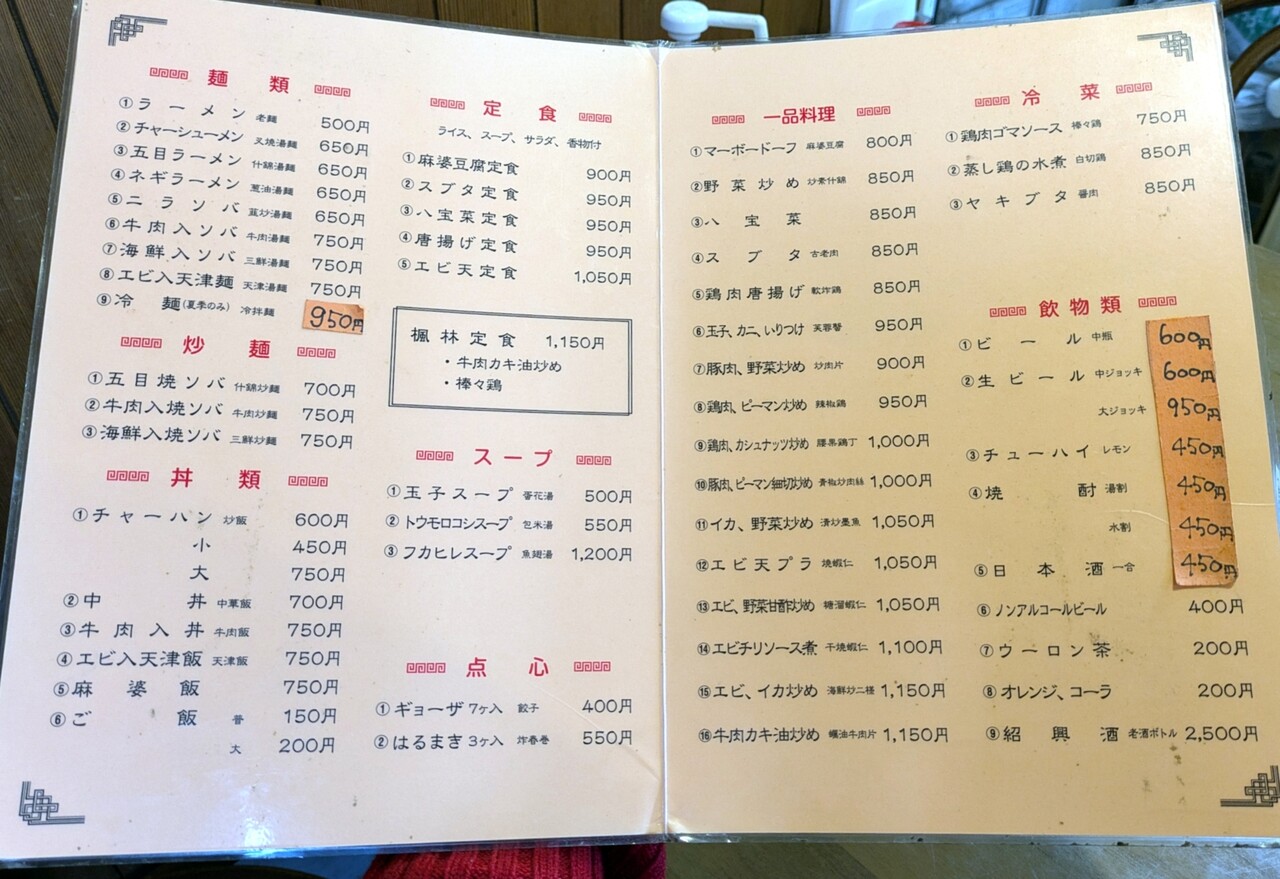 麺類
①ラーメン 老麺 500円
②チャーシューメン 叉焼湯麺 650円
③五目ラーメン 什錦湯麺 650円
④ネギラーメン 葱油湯麺 650円
⑤ニラソバ 韮炒湯麺 650円
⑥牛肉入ソバ 牛肉湯麺 750円
⑦海鮮入ソバ 三鮮湯麺 750円
⑧エビ入天津麺 天津湯麺 750円
⑨冷麺(夏季のみ) 冷拌麺 950円
炒麺
①五目焼ソバ 什錦炒麺 700円
②牛肉入焼ソバ 牛肉炒麺 750円
③海鮮入焼ソバ 三鮮炒麺 750円
丼類
①チャーハン 炒飯 600円
小 450円
大 750円
②中丼 中華飯 700円
③牛肉入丼 牛肉飯 750円
④エビ入天津飯 天津飯 750円
⑤麻婆飯 750円
⑥ご飯 普 150円
大 200円
定食
ライス、スープ、サラダ、香物付
①麻婆豆腐定食 900円
②スブタ定食 950円
③八宝菜定食 950円
④唐揚げ定食 950円
⑤エビ天定食 1,050円
楓林定食 1,150円
・牛肉カキ油炒め
・棒々鶏
スープ
①玉子スープ 蛋花湯 500円
②トウモロコシスープ 包米湯 550円
③フカヒレスープ 魚翅湯 1,200円
点心
①ギョーザ 7ヶ入 餃子 400円
②はるまき 3ヶ入 炸春巻 550円
一品料理
①マーボードーフ 麻婆豆腐 800円
②野菜炒め 炒素什錦 850円
③八宝菜 850円
④スブタ 古老肉 850円
⑤鶏肉唐揚げ 軟炸鶏 850円
⑥玉子、カニ、いりつけ 芙蓉蟹 950円
⑦豚肉、野菜炒め 炒肉片 900円
⑧鶏肉、ピーマン炒め 辣椒鶏 950円
⑨鶏肉、カシュナッツ炒め 腰果鶏丁 1,000円
⑩豚肉、ピーマン細切炒め 青椒炒肉絲 1,000円
⑪イカ、野菜炒め 清炒墨魚 1,050円
⑫エビ天プラ 焼蝦仁 1,050円
⑬エビ、野菜甘酢炒め 糖溜蝦仁 1,050円
⑭エビチリソース煮 干焼蝦仁 1,100円
⑮エビ、イカ炒め 海鮮炒二様 1,150円
⑯牛肉カキ油炒め 蠣油牛肉片 1,150円
冷菜
①鶏肉ゴマソース 棒々鶏 750円
②蒸し鶏の水煮 白切鶏 850円
③ヤキブタ 醤肉 850円
飲物類
①ビール 中瓶 600円
②生ビール 中ジョッキ 600円
大ジョッキ 950円
③チューハイ レモン 450円
④焼酎 湯割 450円
水割 450円
⑤日本酒 一合 450円
⑥ノンアルコールビール 400円
⑦ウーロン茶 200円
⑧オレンジ、コーラ 200円
⑨紹興酒 老酒ボトル 2,500円